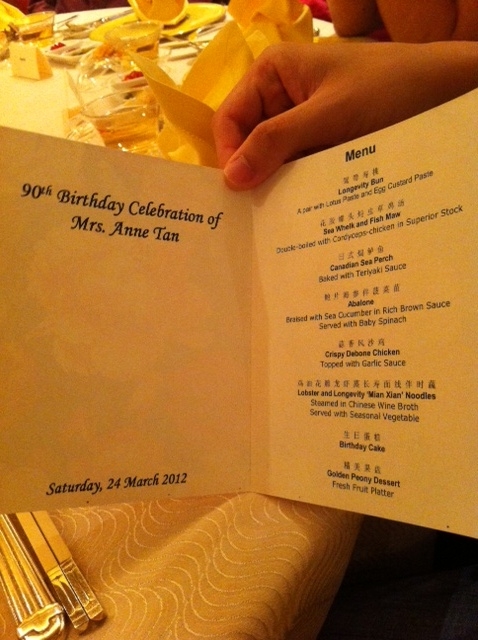 90th Birthday Celebration of
Mrs. Anne Tan
Saturday, 24 March 2012
Menu
Longevity Bun
A pair with Lotus Paste and Egg Custard Paste
Sea Whelk and Fish Maw
Double-boiled with Cordyceps-chicken in Superior Stock
日式焗鲈鱼
Canadian Sea Perch
Baked with Teriyaki Sauce
Abalone
Braised with Sea Cucumber in Rich Brown Sauce
Served with Baby Spinach
蒜香风沙鸡
Crispy Debone Chicken
Topped with Garlic Sauce
Lobster and Longevity 'Mian Xian' Noodles
Steamed in Chinese Wine Broth
Served with Seasonal Vegetable
生日蛋糕
Birthday Cake
精美果盘
Golden Peony Dessert
Fresh Fruit Platter